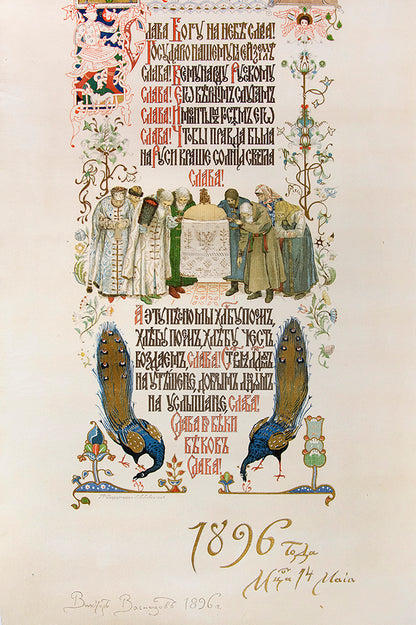 Слава Богу на небѣ слава!
Государю нашему на сей землѣ
Слава! Всему народу Рускому
Слава! Его вѣрнымъ слугамъ
Слава! Именитымъ гостемъ его
Слава! Чтобы правда была
на Руси краше солнца свѣтла
Слава!
А эту пѣсню мы хлѣбу поемъ,
хлѣбу поемъ, хлѣбу честь
воздаемъ, Слава! Старымъ людямъ
на утѣшенье, добрымъ людямъ
на услышанье, Слава!
Слава во вѣки
вѣковъ
Слава!
1896 года
Мца 14 Маія
Викторъ Васнецовъ 1896 г.